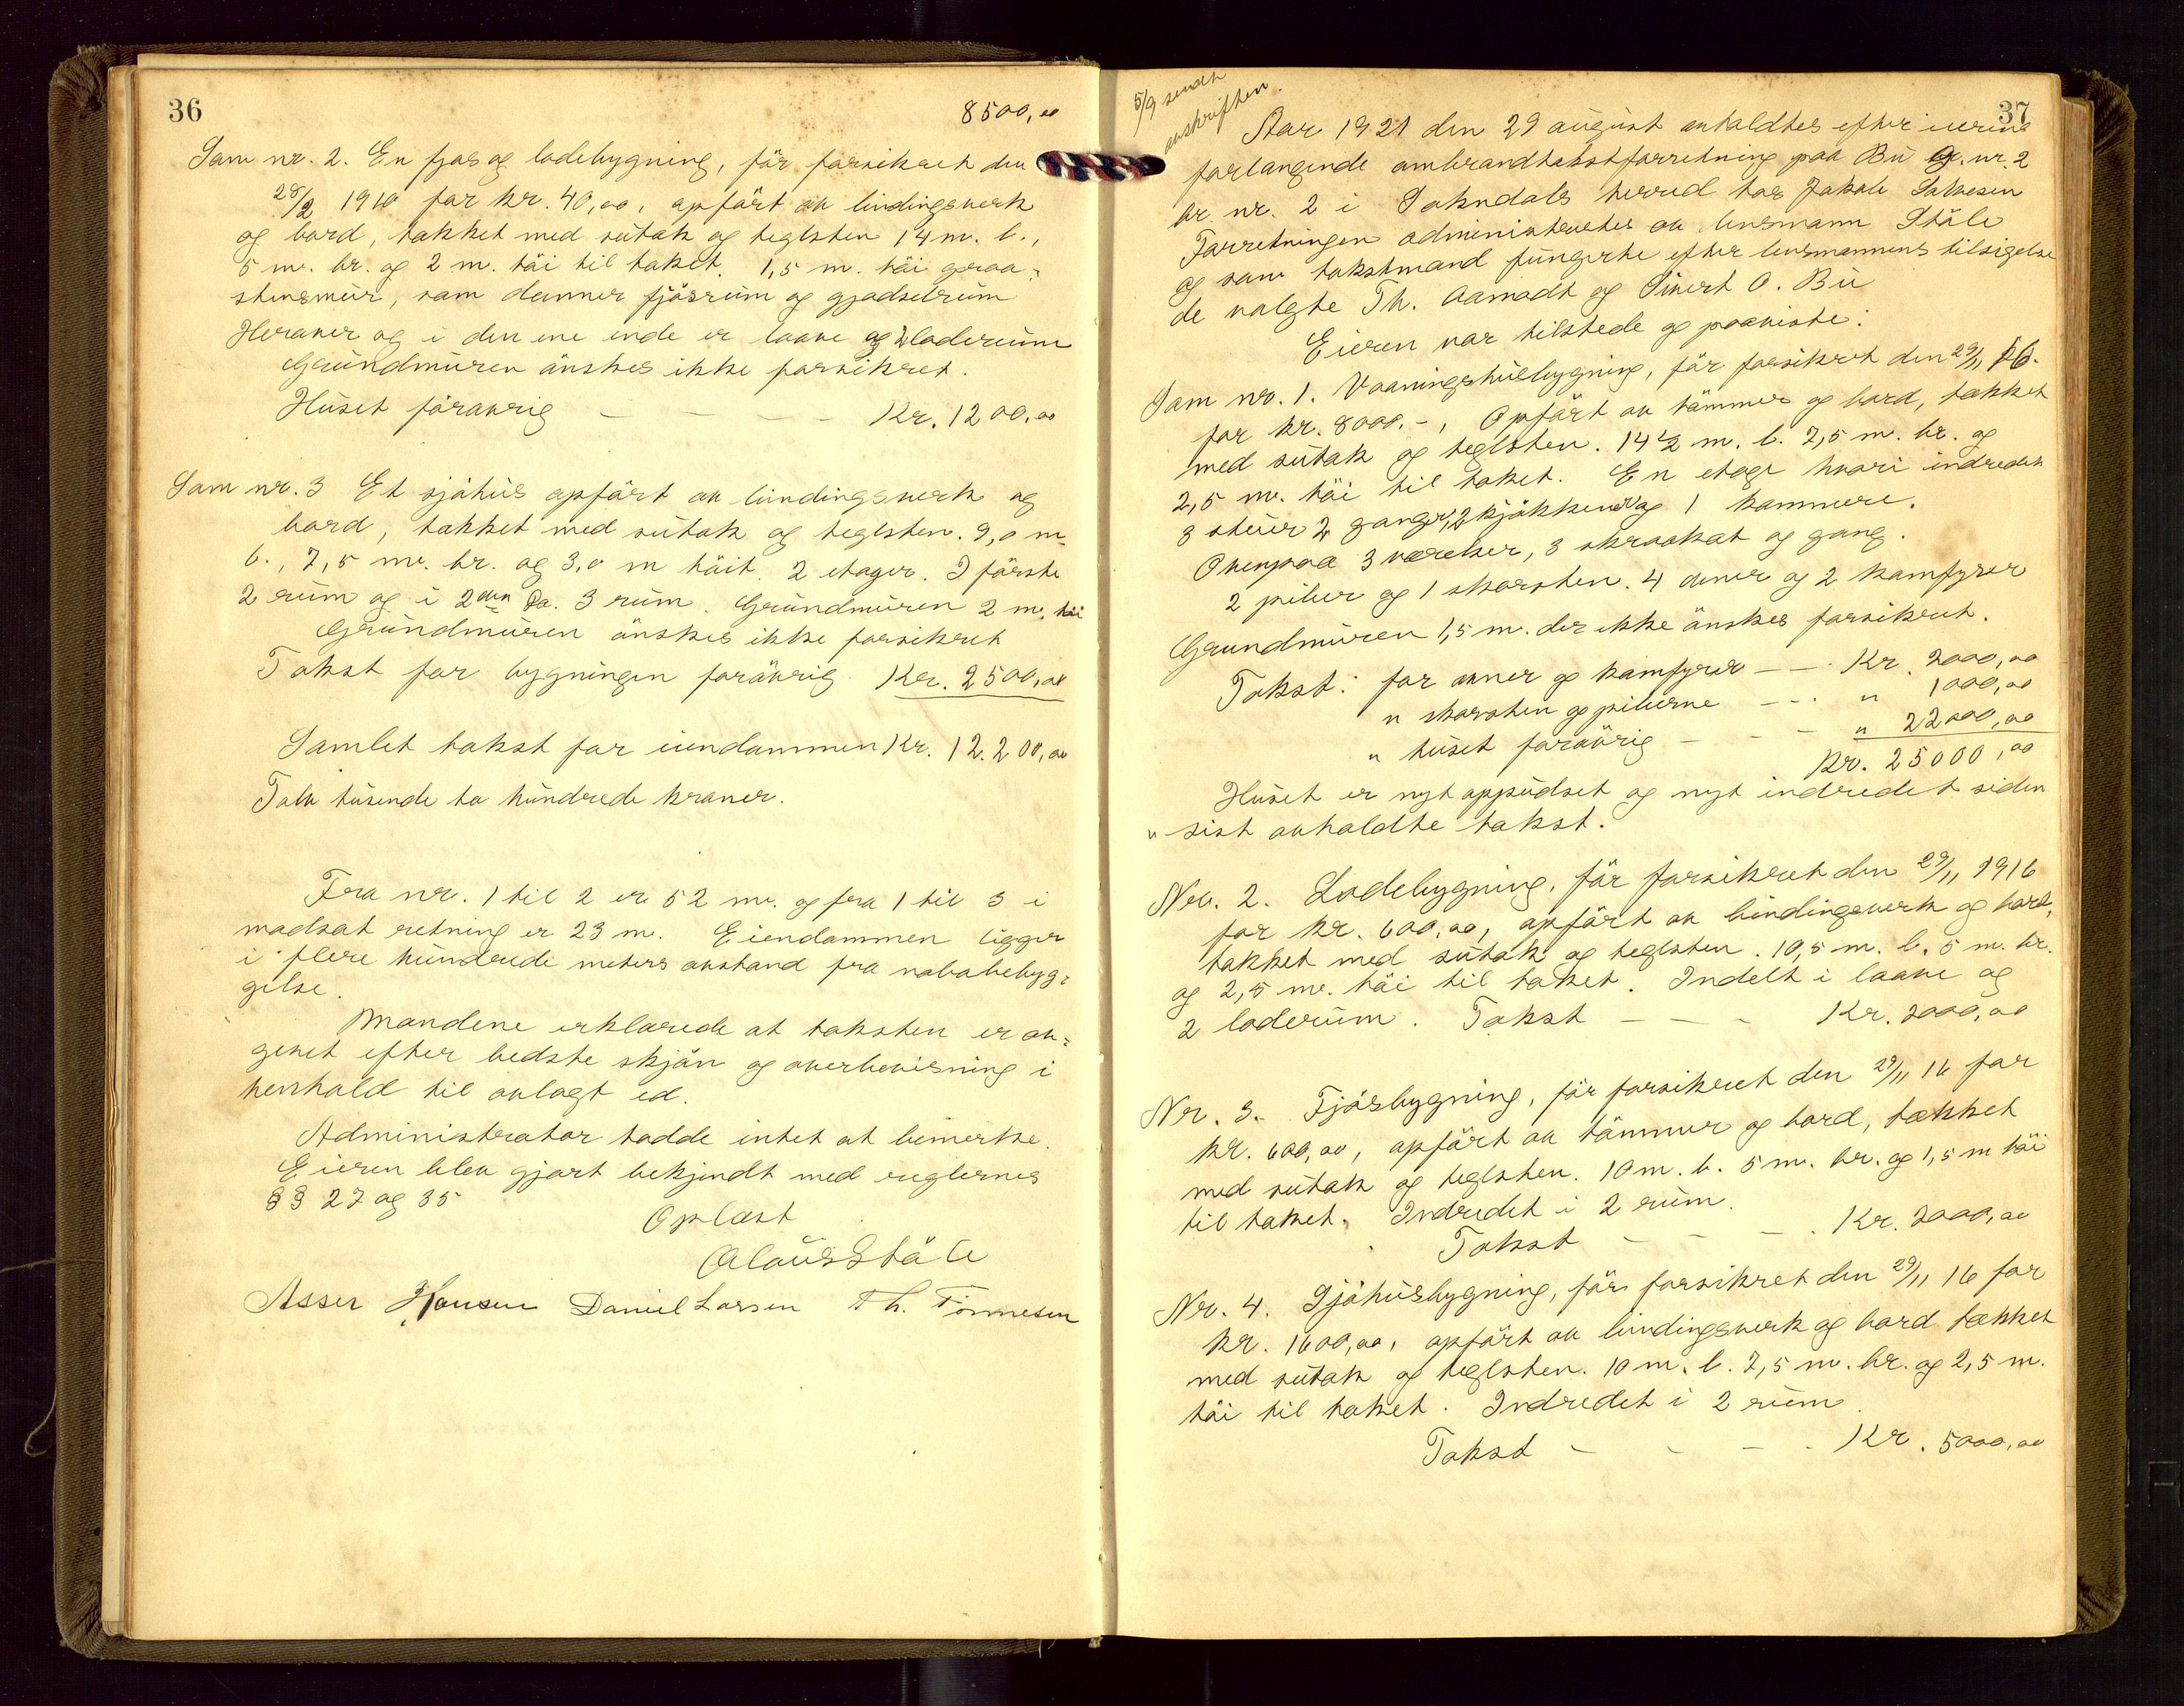 36
8500,00
Som nr. 2. En fjøs og ladebygning, før forsikret den
28/2 1910 for kr. 40,00, opført av bindingsverk
og bord, tækket med sutak og teglsten 14 m. l.,
5 m. br. og 2 m. høi til taket. 1,5 m. høi graa-
stensmur, som danner fjøsrum og gjødselrum
Herover og i den ene ende er laave og 2 laderum
Grundmuren ønskes ikke forsikret.
Huset forøvrig — — — — Kr. 1200,00
Som nr. 3 Et sjøhus opført av bindingsverk og
bord, tækket med sutak og teglsten. 9,0 m
l., 7,5 m. br. og 3,0 m høit. 2 etager. I første
2 rum og i 2den Do. 3 rum. Grundmuren 2 m. høi
Grundmuren ønskes ikke forsikret
Takst for bygningen forøvrig Kr. 2500,00
Samlet takst for eiendommen Kr. 12.200,00
Tolv tusende to hundrede kroner.
Fra nr. 1 til 2 er 52 m. og fra 1 til 3 i
modsat retning er 23 m. Eiendommen ligger
i flere hundrede meters avstand fra nabobebyg-
gelse.
Mændene erklærede at taksten er av-
givet efter bedste skjøn og overbevisning i
henhold til avlagt ed.
Administrator hadde intet at bemerke.
Eieren blev gjort bekjendt med reglernes
§§ 27 og 35
Oplæst
Olaus Ståle
Asser Hansen Daniel Larsen Th. Tönnesen
5/9 sendt
avskriften.
37
Aar 1921 den 29 august avholdtes efter eierens
forlangende ombrandtakstforretning paa Bu G. nr. 2
br. nr. 2 i Sokndals herred hos Jakob Salvesen
Forretningen administrertes av lensmann Ståle
og som takstmænd fungerte efter lensmannens tilsigelse
de valgte Th. Aamodt og Sivert O. Bu
Eieren var tilstede og paaviste:
Som nr. 1. Vaaningshusbygning, før forsikret den 29/11 16.
for kr. 8000.-, Opført av tømmer og bord, tækket
med sutak og teglsten. 14 1/2 m. l. 7,5 m. br. og
2,5 m. høi til taket. En etage hvori indredet
3 stuer 2 ganger, 2 kjøkkener og 1 kammere.
Ovenpaa 3 værelser, 3 skraakot og gang.
2 piber og 1 skorsten. 4 ovner og 2 komfyrer
Grundmuren 1,5 m. der ikke ønskes forsikret.
Takst: for ovner og komfyrer — — Kr. 2000,00
" skorsten og piberne — — " 1000,00
" huset forøvrig — — — " 22000,00
Kr. 25000,00
Huset er nyt oppudset og nyt indredet siden
" sist avholdte takst.
Nr. 2. Ladebygning, før forsikret den 29/11 1916
for kr. 600,00, opført av bindingsverk og bord,
tækket med sutak og teglsten. 10,5 m. l. 5 m. br.
og 2,5 m. høi til taket. Indelt i laave og
2 laderum. Takst — — — Kr. 2000,00
Nr. 3. Fjøsbygning, før forsikret den 29/11 16 for
kr. 600,00, opført av tømmer og bord, tækket
med sutak og teglsten. 10 m. l. 5 m. br. og 1,5 m høi
til taket. Indredet i 2 rum.
Takst — — — Kr. 2000,00
Nr. 4. Sjøhusbygning, før forsikret den 29/11 16 for
kr. 1600,00, opført av bindingsverk og bord tækket
med sutak og teglsten. 10 m. l. 7,5 m. br. og 2,5 m.
høi til taket. Indredet i 2 rum.
Takst — — — Kr. 5000,00